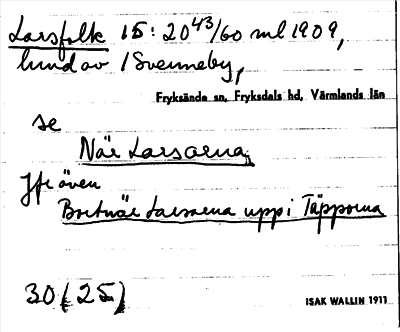 Larsfolk 15: 20⁴³/60 ml 1909,
hmd av / Svenneby,
Fryksände sn, Fryksdals hd, Värmlands län
se
När Larsarna,
Jfr även
Bortnär Larsarna uppi Täpporna
30 (25)
ISAK WALLIN 1911